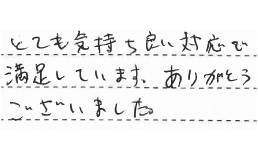 とても気持ち良い対応で
満足しています。ありがとう
ございました。